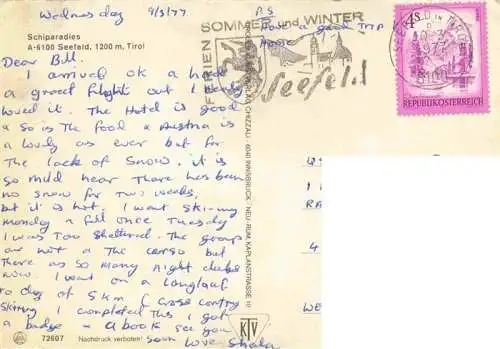 Wednesday 9/3/77
Schiparadies
A-6100 Seefeld, 1200 m, Tirol
Dear Bill,
I arrived ok & had
a great flight out I really
loved it. The Hotel is good
& so is the food & Austria is
a lovely as ever but for
the lack of snow. it is
so mild hear there has been
no snow for two weeks,
but it is hot. I want Ski-ing
Monday & fell once Tuesday
I was too sheltered. The group
are not a the so
there as so many night clubs
now. I want on a Langlauf
to day of 5 km (cross contry
Skiing I completed this I got
a badge & a book see you
Soon Love Sheila
72607 Nachdruck verboten!
P.S
Have a good trip
Home
FERIEN SOMMER und WINTER
Seefeld
6100
4S
REPUBLIK ÖSTERREICH
CHIZZALI · 6040 INNSBRUCK · NEU-RUM, KAPLANSTRASSE
KTV
RA
4
WE